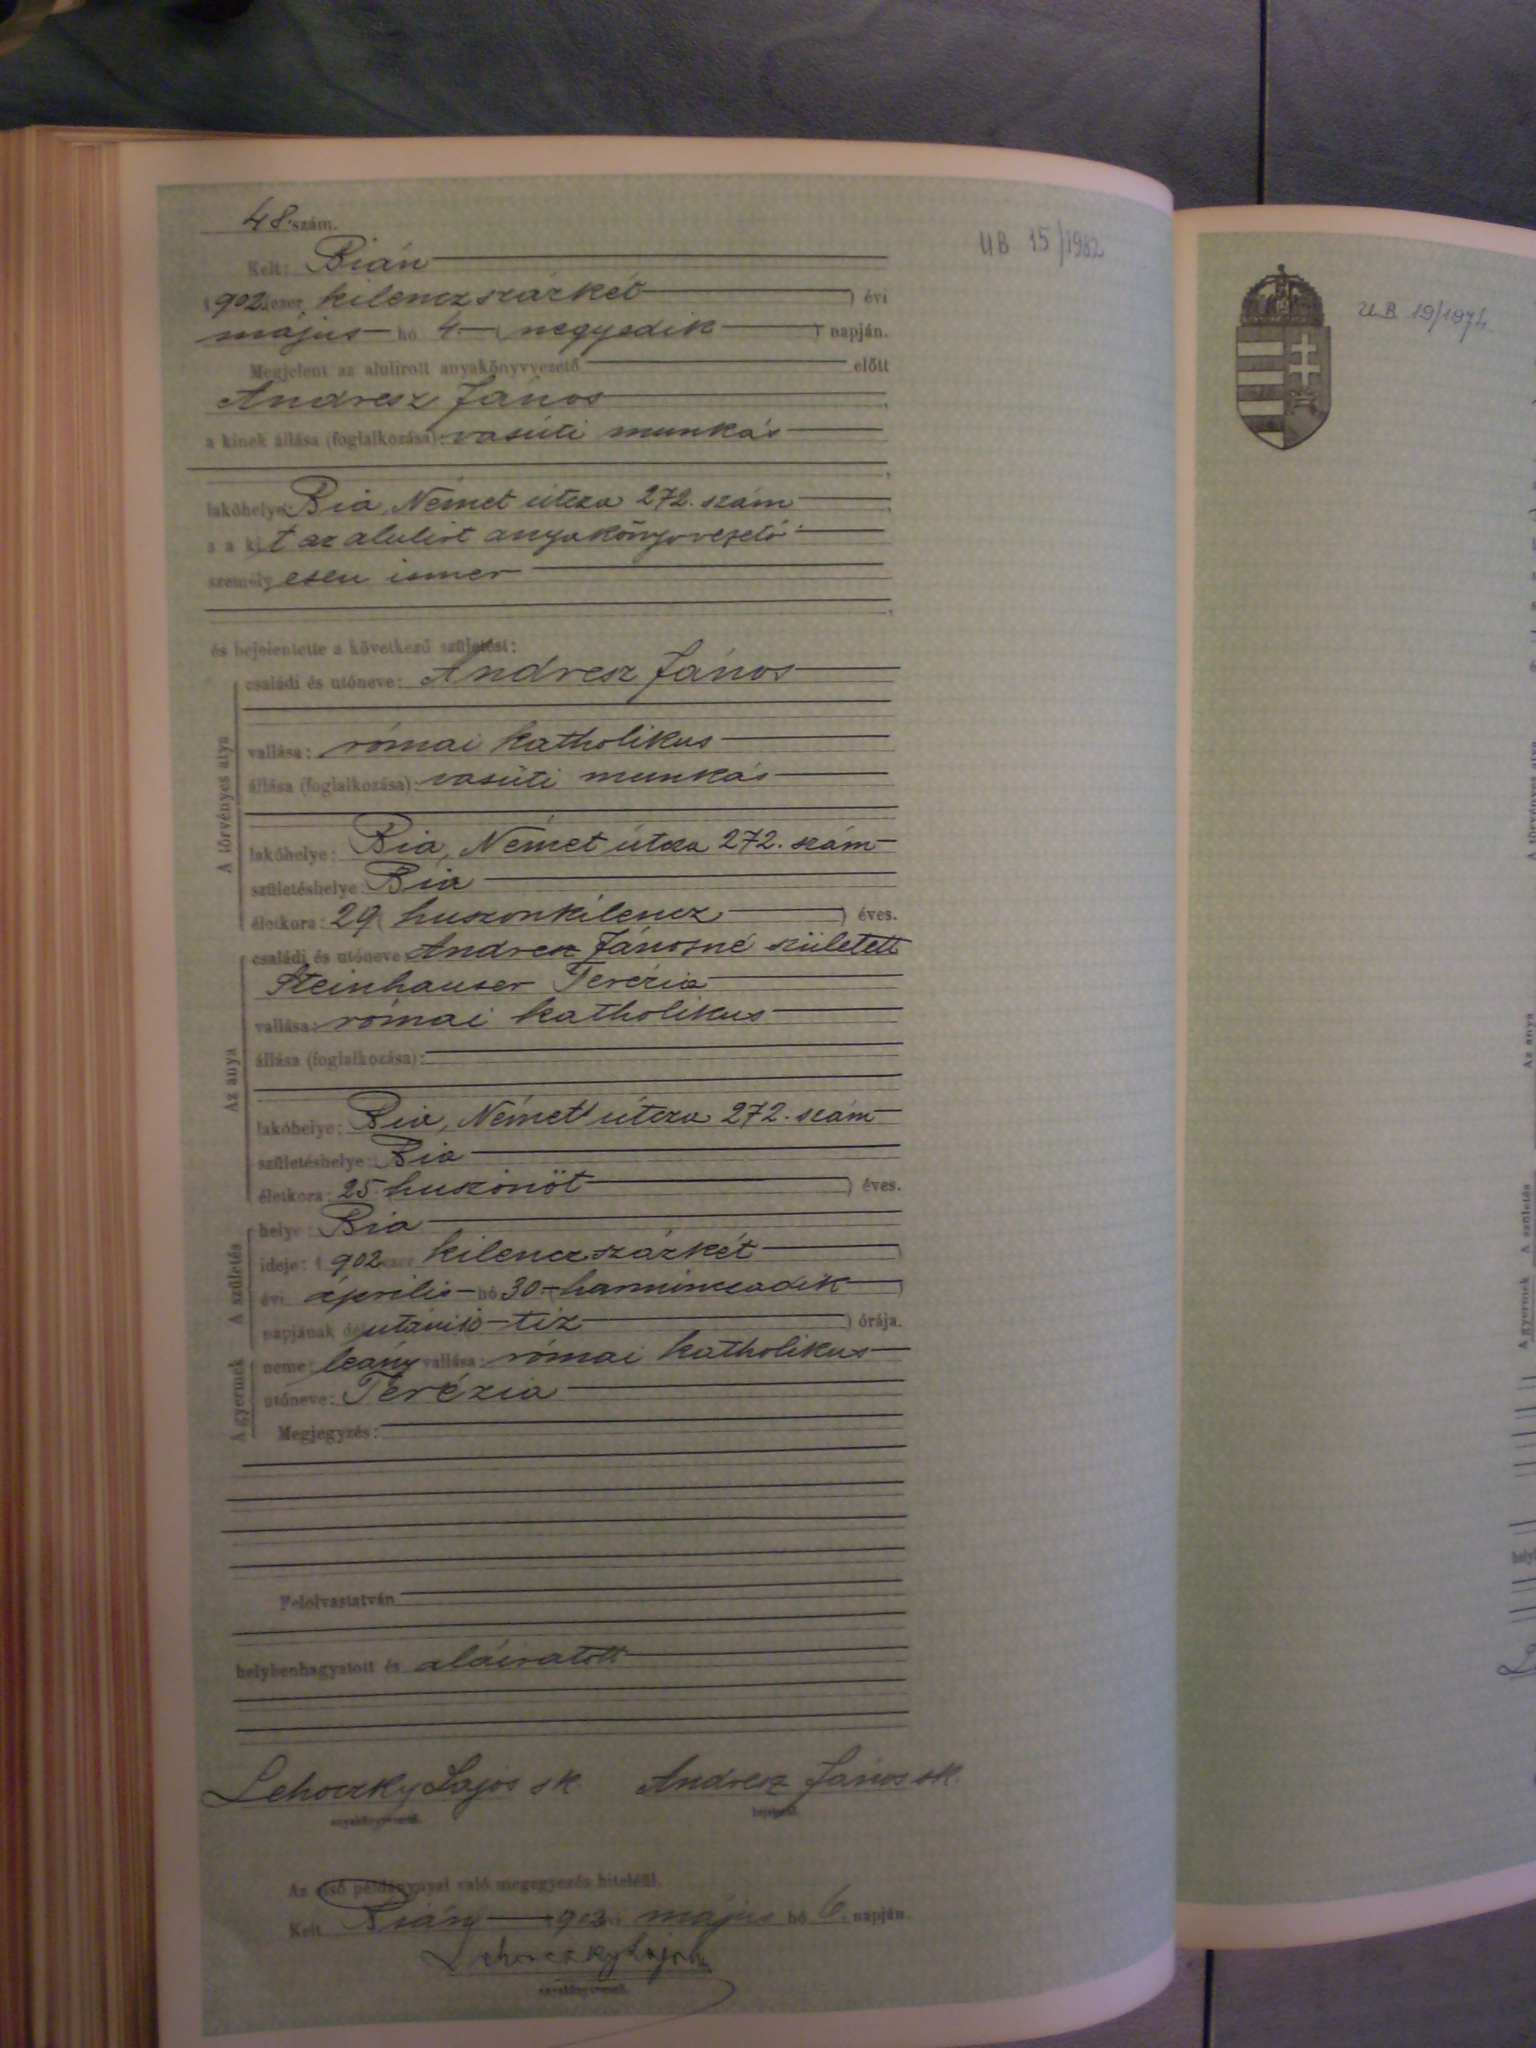 48. szám.
UB 15/1982
Kelt: Bián
1902 ezer kilenczszázkét évi
május hó 4 (negyedik) napján.
Megjelent az alulirott anyakönyvvezető előtt
Andresz János
a kinek állása (foglalkozása): vasúti munkás
lakóhelye: Bia, Német útcza 272. szám
s a kit az alulirt anyakönyvvezető
személyesen ismer
és bejelentette a következő születést:
A törvényes atya
családi és utóneve: Andresz János
vallása: római katholikus
állása (foglalkozása): vasúti munkás
lakóhelye: Bia, Német útcza 272. szám
születéshelye: Bia
életkora: 29 (huszonkilencz) éves.
Az anya
családi és utóneve: Andresz Jánosné született
Steinhauser Terézia
vallása: római katholikus
állása (foglalkozása):
lakóhelye: Bia, Német útcza 272. szám
születéshelye: Bia
életkora: 25 (huszonöt) éves.
A születés
helye: Bia
ideje: 1902 ezer kilenczszázkét
évi április hó 30 (harminczadik)
napjának délutáni tíz órája.
A gyermek
neme: leány vallása: római katholikus
utóneve: Terézia
Megjegyzés:
Felolvastatván
helybenhagyatott és aláiratott
Lehoczky Lajos sk. Andresz János sk.
anyakönyvvezető. bejelentő.
Az első példánynyal való megegyezés hiteléül.
Kelt Bián, 1902 évi május hó 6. napján.
Lehoczky Lajos
anyakönyvvezető.
UB 19/1974.
Az anya
A születés
A gyermek